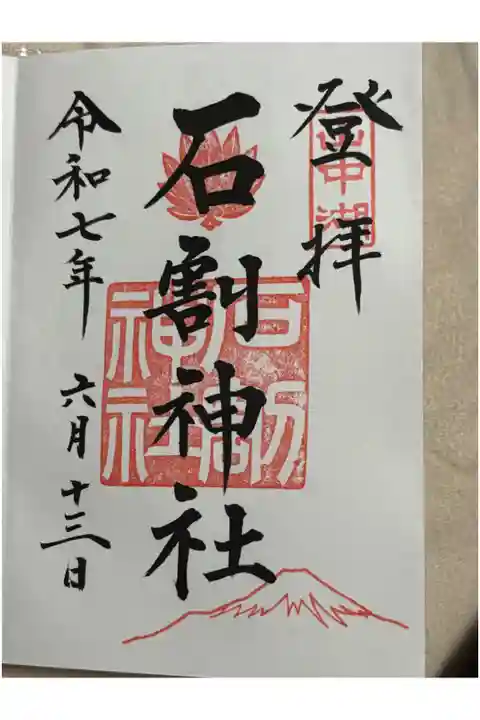 登拝
山中湖
石割神社
石割神社
令和七年 六月十三日